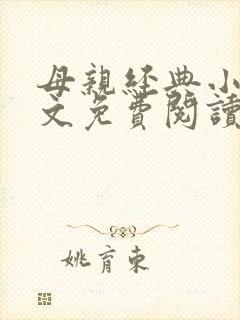 母親經典小
文免費閱讀
姚育東